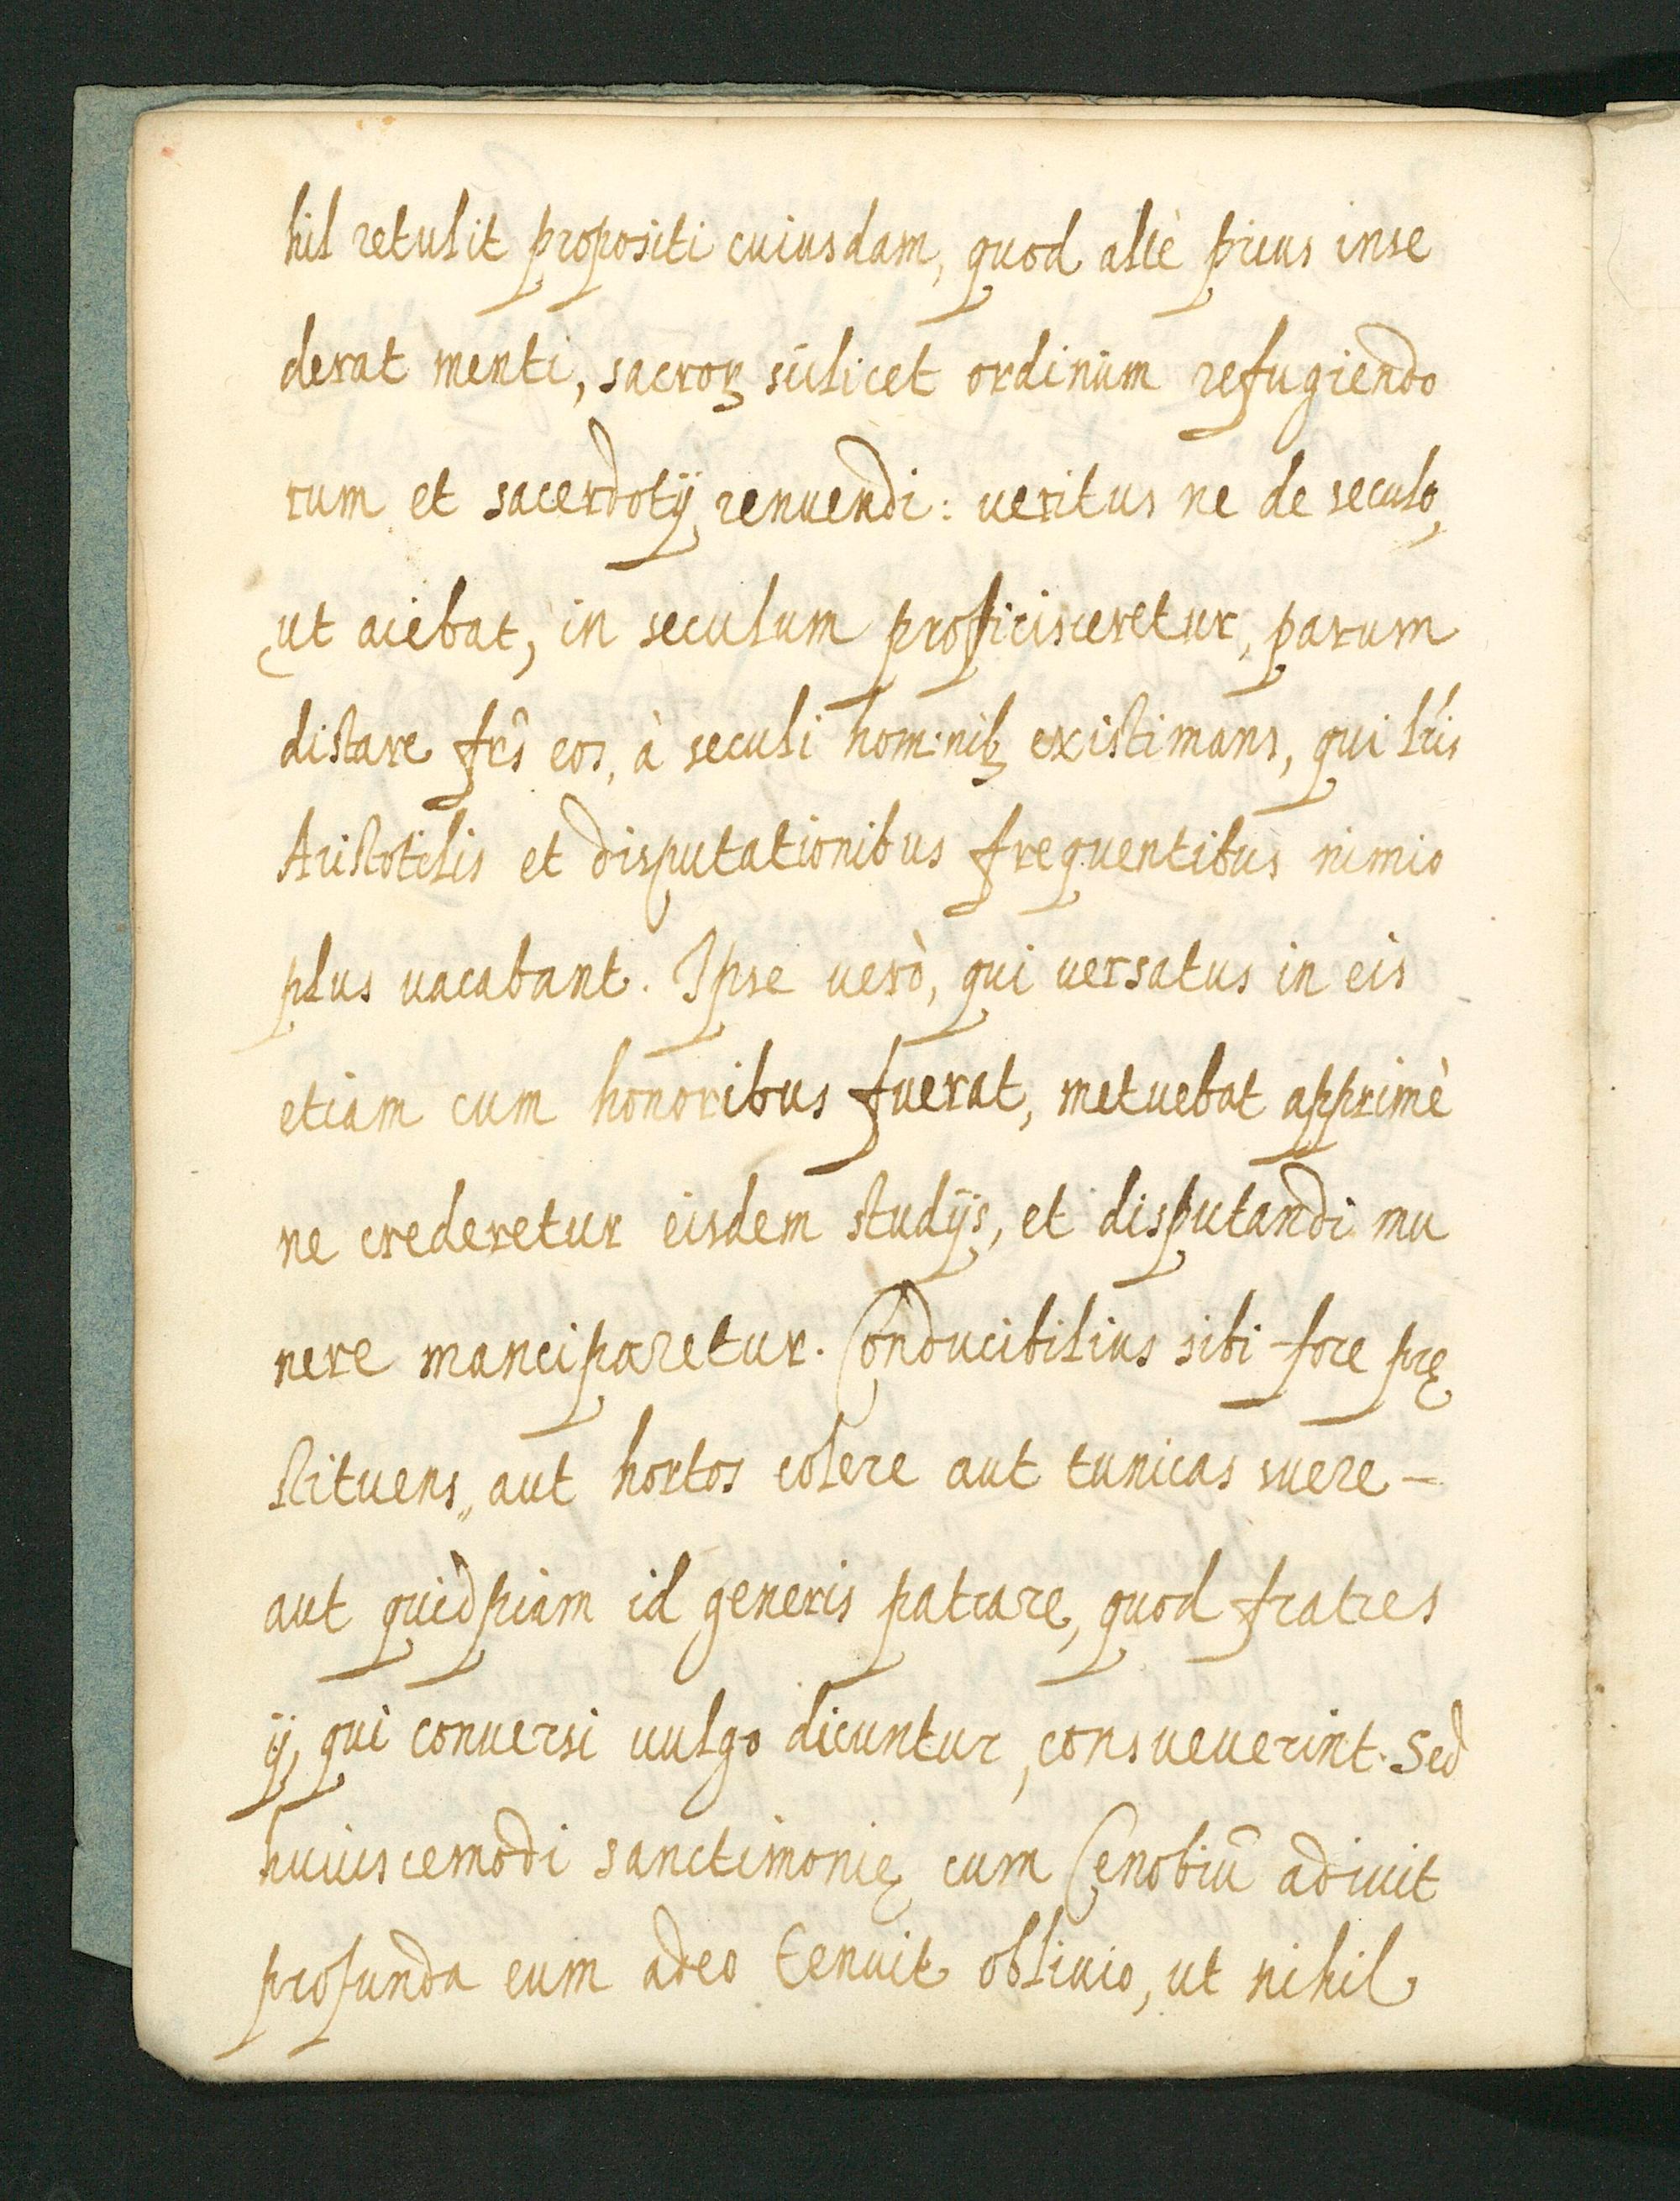 hil retulit propositi cuiusdam, quod altè prius inse
derat menti, sacroꝝ scilicet ordinum refugiendo
rum et sacerdotÿ renuendi: ueritus ne de seculo,
ut aiebat, in seculum proficisceretur, parum
distare frẽs eos, à seculi hominibꝫ existimans, qui lr̃is
Aristotelis et disputationibus frequentibus nimio
plus uacabant. Ipse uerò, qui uersatus in eis
etiam cum honoribus fuerat, metuebat apprimè
ne crederetur eisdem studÿs, et disputandi mu
nere manciparetur. Conducibilius sibi fore prę
stituens, aut hortos colere aut tunicas suere -
aut quidpiam id generis patrare, quod fratres
ÿ, qui conuersi uulgo dicuntur, consueuerint. Sed
huiuscemodi sanctimonię cum Cenobiũ adiuit
profunda eum adeo tenuit obliuio, ut nihil